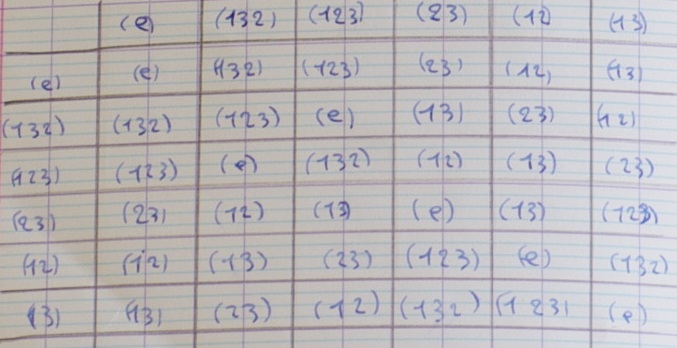 (e) (132) (123) (23) (12) (13)
(e) (e) (132) (123) (23) (12) (13)
(132) (132) (123) (e) (13) (23) (12)
(123) (123) (e) (132) (12) (13) (23)
(23) (23) (12) (13) (e) (13) (123)
(12) (12) (13) (23) (123) (e) (132)
(13) (13) (23) (12) (132) (123) (e)